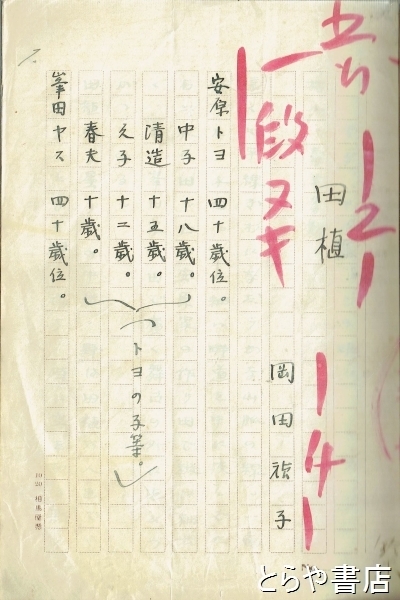 一段ヌキ
田植
岡田禎子
安原トヨ 四十歳位。
中子 十八歳。
清造 十五歳。
え子 十二歳。
春夫 十歳。
(トヨの子等。)
峯田ヤス 四十歳位。
相馬屋製
とらや書店